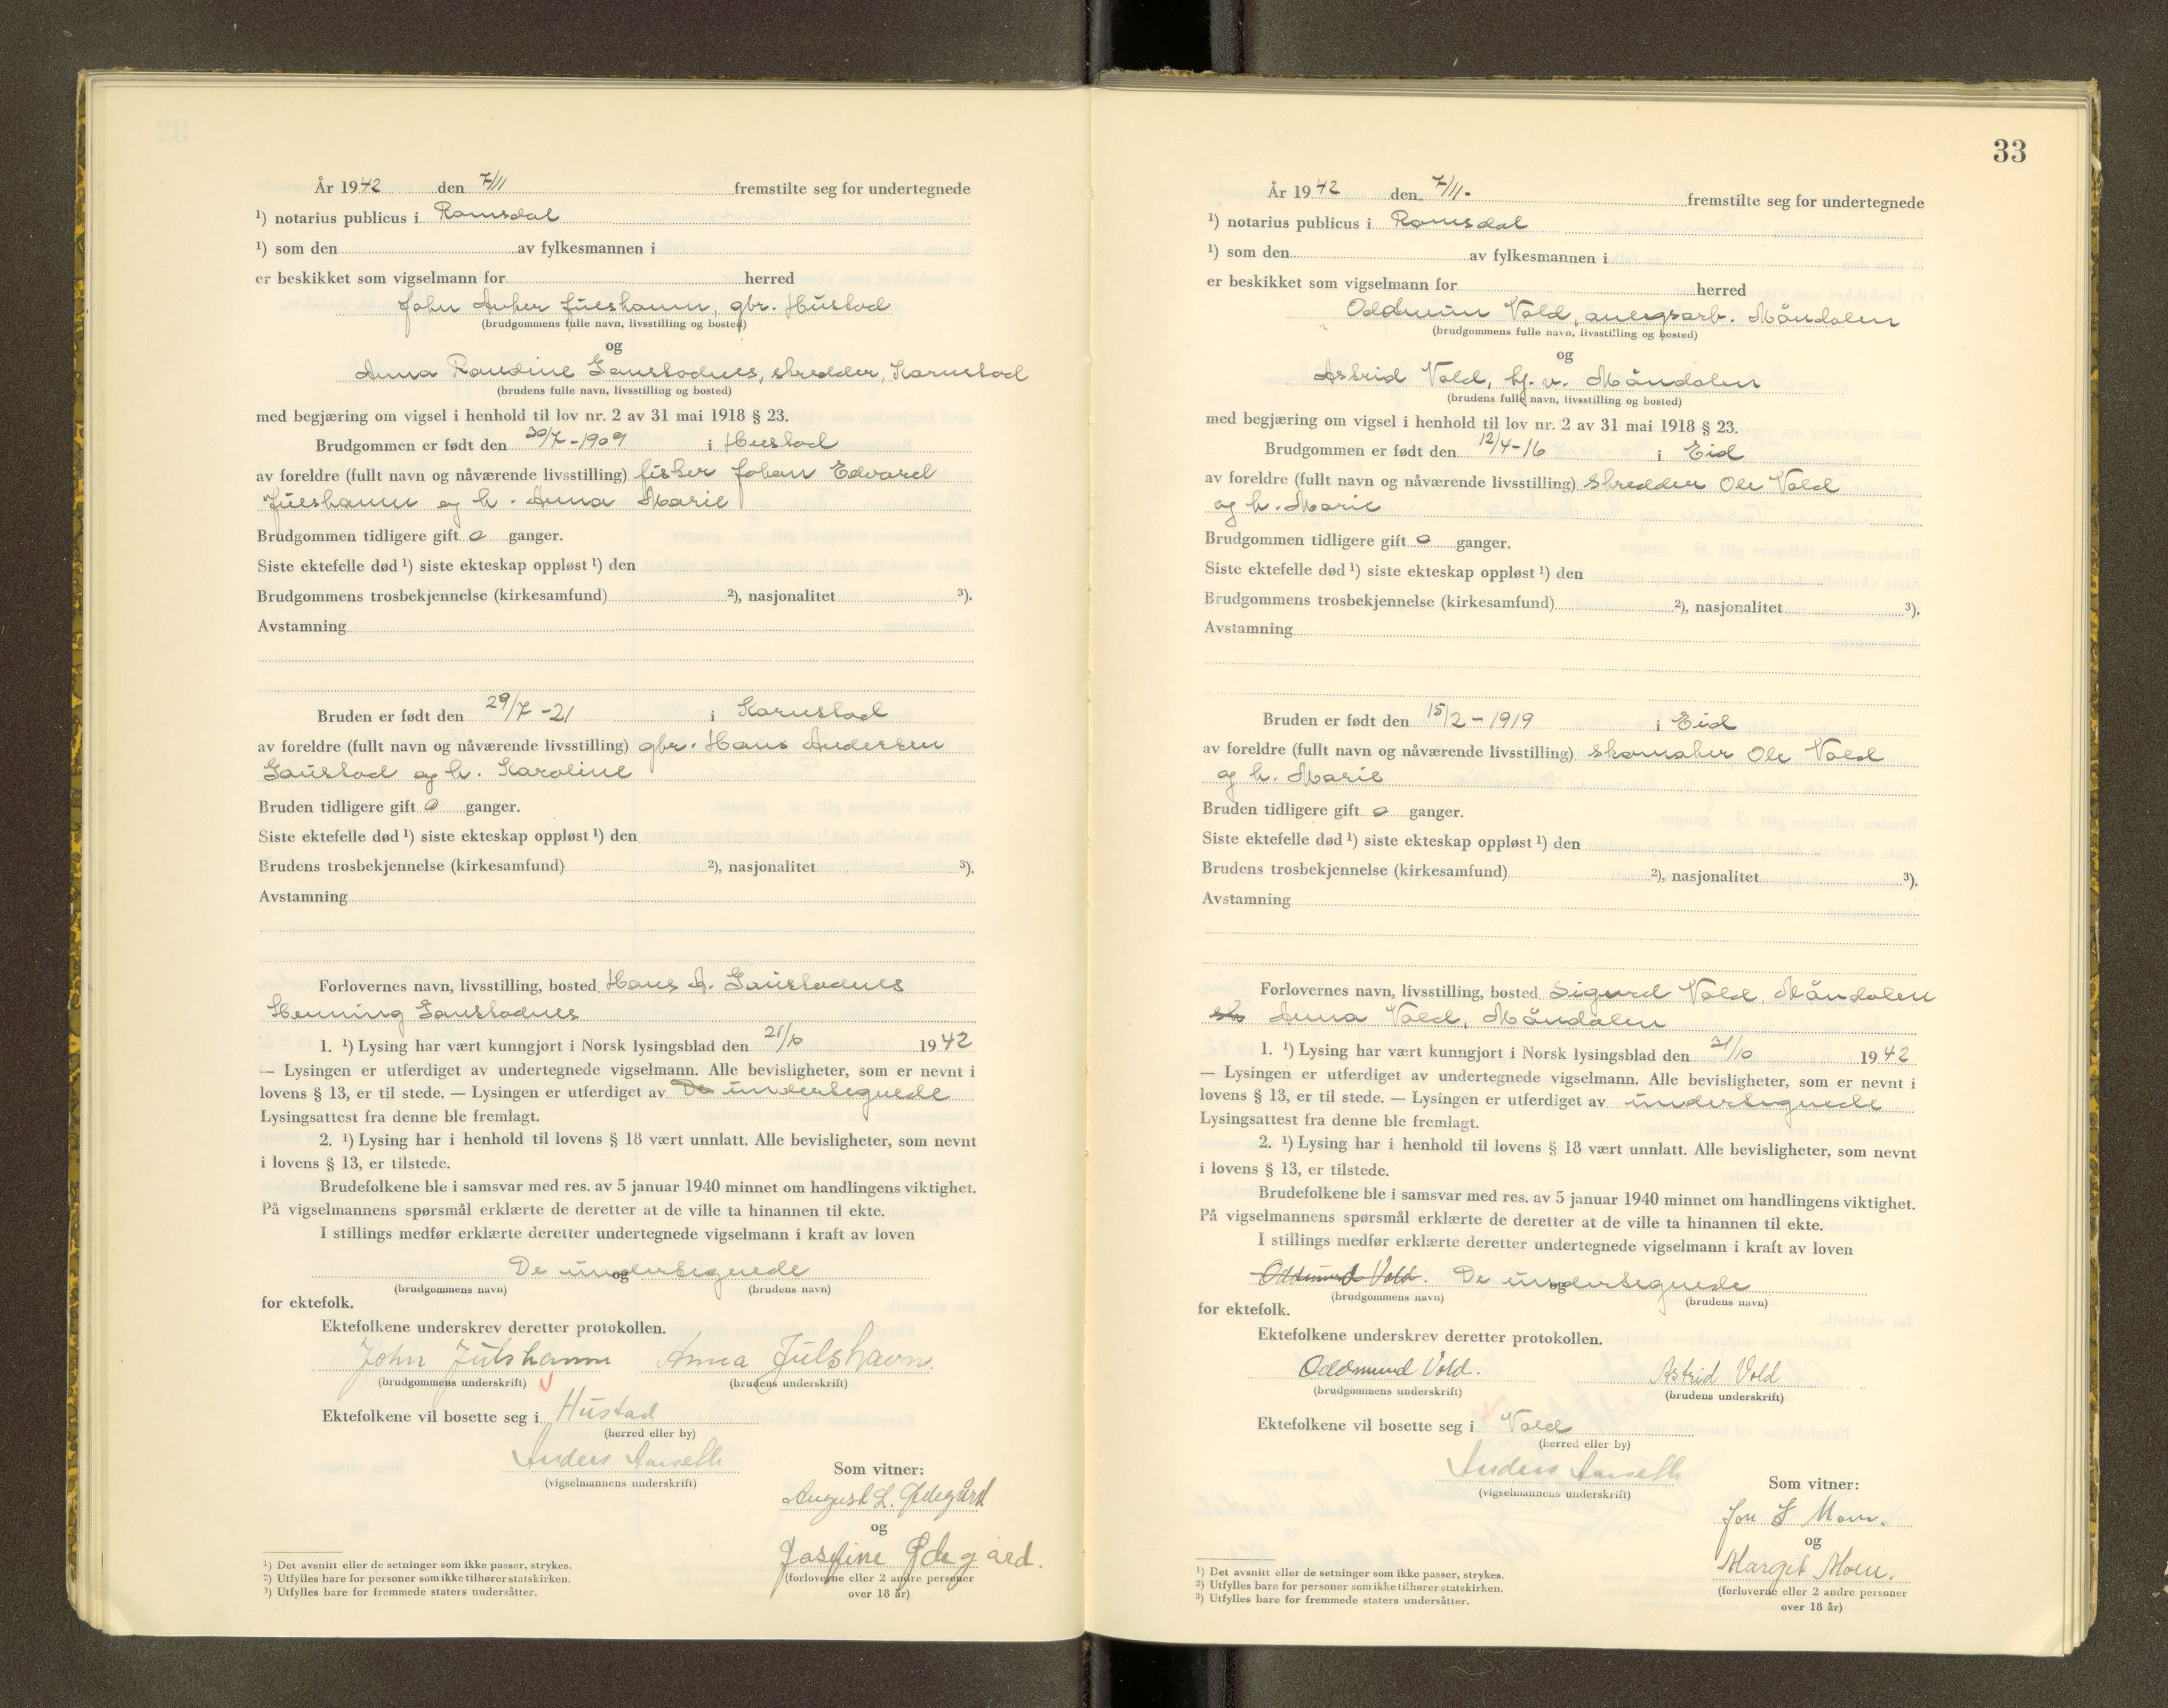 År 1942 den 7/11 fremstilte seg for undertegnede
¹) notarius publicus i Romsdal
¹) som den av fylkesmannen i
er beskikket som vigselmann for herred
John Anker Julshamn, gbr. Hustad
(brudgommens fulle navn, livsstilling og bosted)
og
Anna Randine Gaustadnes, skredder, Karnstad
(brudens fulle navn, livsstilling og bosted)
med begjæring om vigsel i henhold til lov nr. 2 av 31 mai 1918 § 23.
Brudgommen er født den 30/7-1909 i Hustad
av foreldre (fullt navn og nåværende livsstilling) fisker Johan Edvard
Julshamn og h. Anna Marie
Brudgommen tidligere gift 0 ganger.
Siste ektefelle død ¹) siste ekteskap oppløst ¹) den
Brudgommens trosbekjennelse (kirkesamfund) ²), nasjonalitet ³).
Avstamning
Bruden er født den 29/7-21 i Karnstad
av foreldre (fullt navn og nåværende livsstilling) gbr. Hans Andersen
Gaustad og h. Karoline
Bruden tidligere gift 0 ganger.
Siste ektefelle død ¹) siste ekteskap oppløst ¹) den
Brudens trosbekjennelse (kirkesamfund) ²), nasjonalitet ³).
Avstamning
Forlovernes navn, livsstilling, bosted Hans A. Gaustadnes
Henning Gaustadnes
1. ¹) Lysing har vært kunngjort i Norsk lysingsblad den 21/10 1942
— Lysingen er utferdiget av undertegnede vigselmann. Alle bevisligheter, som er nevnt i
lovens § 13, er til stede. — Lysingen er utferdiget av De undertegnede
Lysingsattest fra denne ble fremlagt.
2. ¹) Lysing har i henhold til lovens § 18 vært unnlatt. Alle bevisligheter, som nevnt
i lovens § 13, er tilstede.
Brudefolkene ble i samsvar med res. av 5 januar 1940 minnet om handlingens viktighet.
På vigselmannens spørsmål erklærte de deretter at de ville ta hinannen til ekte.
I stillings medfør erklærte deretter undertegnede vigselmann i kraft av loven
De undertegnede
og
(brudgommens navn) (brudens navn)
for ektefolk.
Ektefolkene underskrev deretter protokollen.
John Julshamn Anna Julshavn.
(brudgommens underskrift) (brudens underskrift)
Ektefolkene vil bosette seg i Hustad
(herred eller by)
Anders Aarseth
(vigselmannens underskrift)
Som vitner:
August L. Ødegård
og
Jasfine Ødegård.
(forloverne eller 2 andre personer
over 18 år)
¹) Det avsnitt eller de setninger som ikke passer, strykes.
²) Utfylles bare for personer som ikke tilhører statskirken.
³) Utfylles bare for fremmede staters undersåtter.
33
År 1942 den 7/11. fremstilte seg for undertegnede
¹) notarius publicus i Romsdal
¹) som den av fylkesmannen i
er beskikket som vigselmann for herred
Oddmun Vold, anlegsarb. Måndalen
(brudgommens fulle navn, livsstilling og bosted)
og
Astrid Vold, hj. v. Måndalen
(brudens fulle navn, livsstilling og bosted)
med begjæring om vigsel i henhold til lov nr. 2 av 31 mai 1918 § 23.
Brudgommen er født den 12/4-16 i Eid
av foreldre (fullt navn og nåværende livsstilling) skredder Ole Vold
og h. Marie
Brudgommen tidligere gift 0 ganger.
Siste ektefelle død ¹) siste ekteskap oppløst ¹) den
Brudgommens trosbekjennelse (kirkesamfund) ²), nasjonalitet ³).
Avstamning
Bruden er født den 15/2-1919 i Eid
av foreldre (fullt navn og nåværende livsstilling) skomaker Ole Vold
og h. Marie
Bruden tidligere gift 0 ganger.
Siste ektefelle død ¹) siste ekteskap oppløst ¹) den
Brudens trosbekjennelse (kirkesamfund) ²), nasjonalitet ³).
Avstamning
Forlovernes navn, livsstilling, bosted Sigurd Vold, Måndalen
Anna Vold, Måndalen
1. ¹) Lysing har vært kunngjort i Norsk lysingsblad den 21/10 1942
— Lysingen er utferdiget av undertegnede vigselmann. Alle bevisligheter, som er nevnt i
lovens § 13, er til stede. — Lysingen er utferdiget av undertegnede
Lysingsattest fra denne ble fremlagt.
2. ¹) Lysing har i henhold til lovens § 18 vært unnlatt. Alle bevisligheter, som nevnt
i lovens § 13, er tilstede.
Brudefolkene ble i samsvar med res. av 5 januar 1940 minnet om handlingens viktighet.
På vigselmannens spørsmål erklærte de deretter at de ville ta hinannen til ekte.
I stillings medfør erklærte deretter undertegnede vigselmann i kraft av loven
Oddmund Vold. De undertegnede
og
(brudgommens navn) (brudens navn)
for ektefolk.
Ektefolkene underskrev deretter protokollen.
Oddmund Vold. Astrid Vold
(brudgommens underskrift) (brudens underskrift)
Ektefolkene vil bosette seg i Vold
(herred eller by)
Anders Aarseth
(vigselmannens underskrift)
Som vitner:
Jon S Moen.
og
Margit Moen.
(forloverne eller 2 andre personer
over 18 år)
¹) Det avsnitt eller de setninger som ikke passer, strykes.
²) Utfylles bare for personer som ikke tilhører statskirken.
³) Utfylles bare for fremmede staters undersåtter.